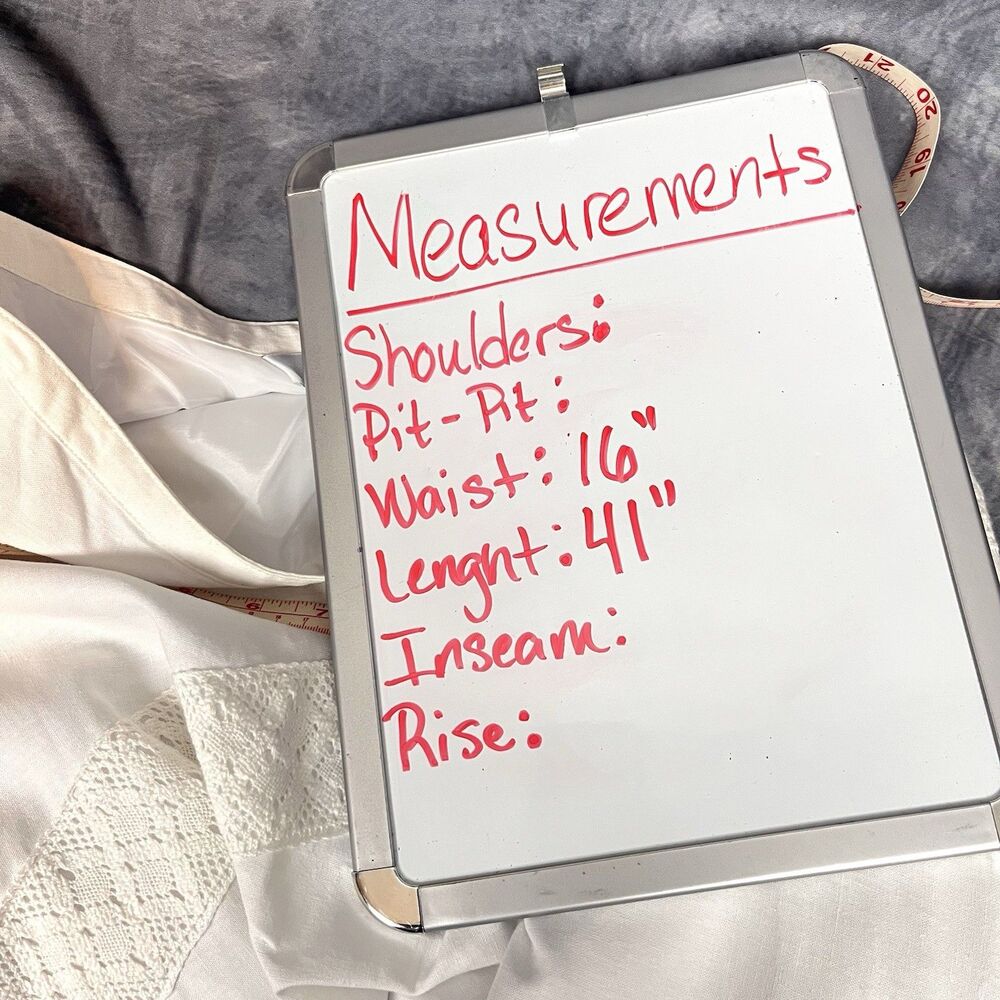 Measurements
Shoulders:
Pit-Pit:
Waist: 16"
Lenght: 41"
Inseam:
Rise:
21
20
19
6
7